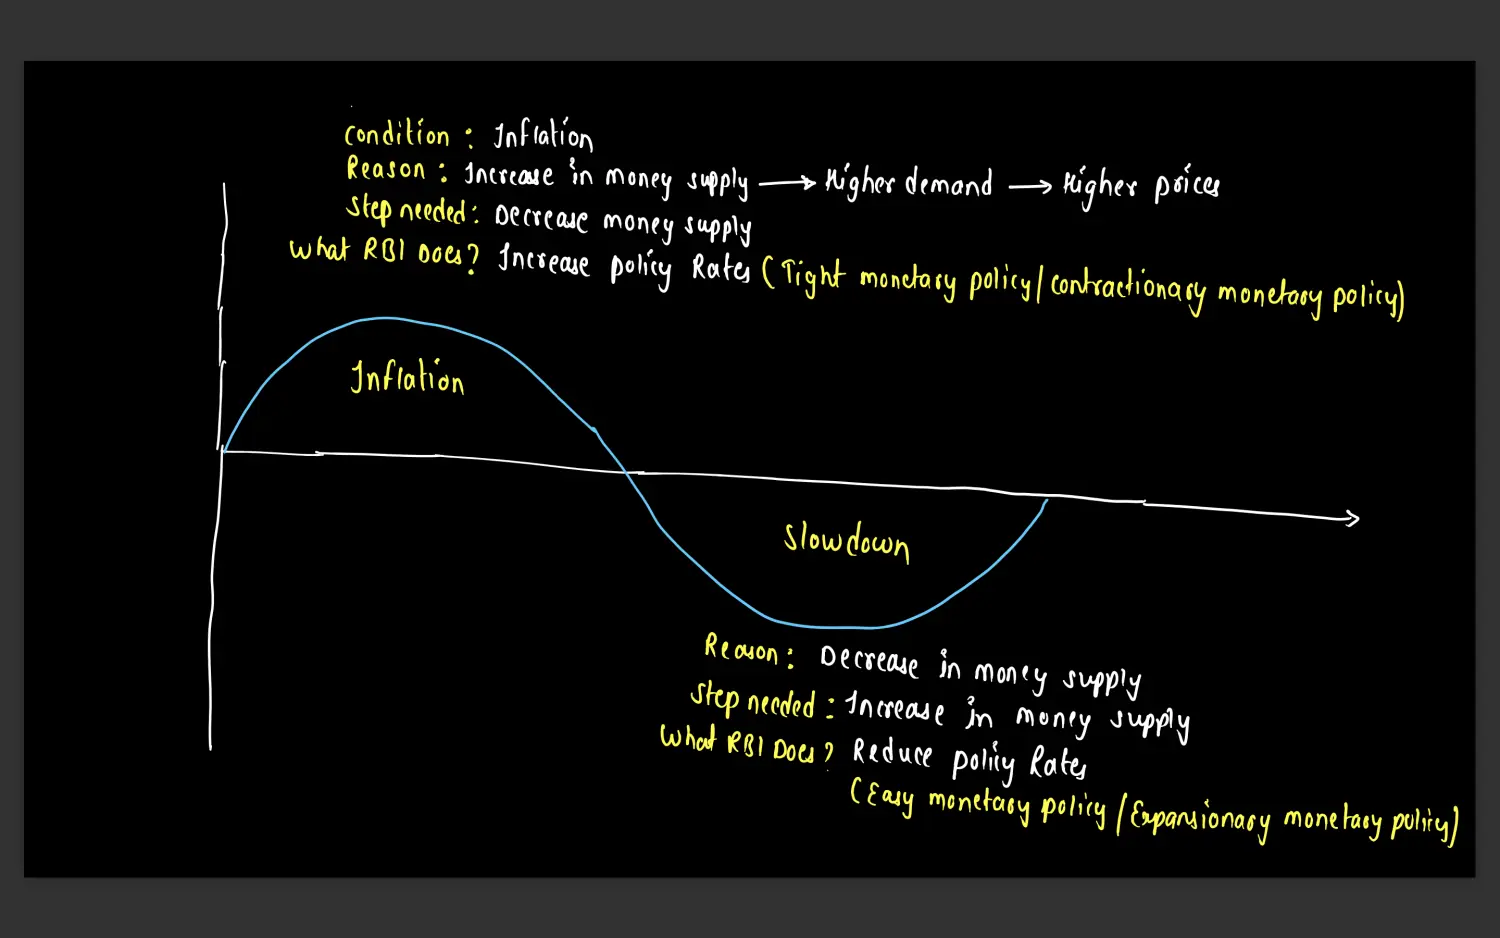 Condition : Inflation
Reason : Increase in money supply → Higher demand → Higher prices
Step needed : Decrease money supply
What RBI Does? Increase policy Rates (Tight monetary policy/contractionary monetary policy)
Inflation
Slowdown
Reason : Decrease in money supply
Step needed : Increase in money supply
What RBI Does? Reduce policy Rates
(Easy monetary policy/Expansionary monetary policy)